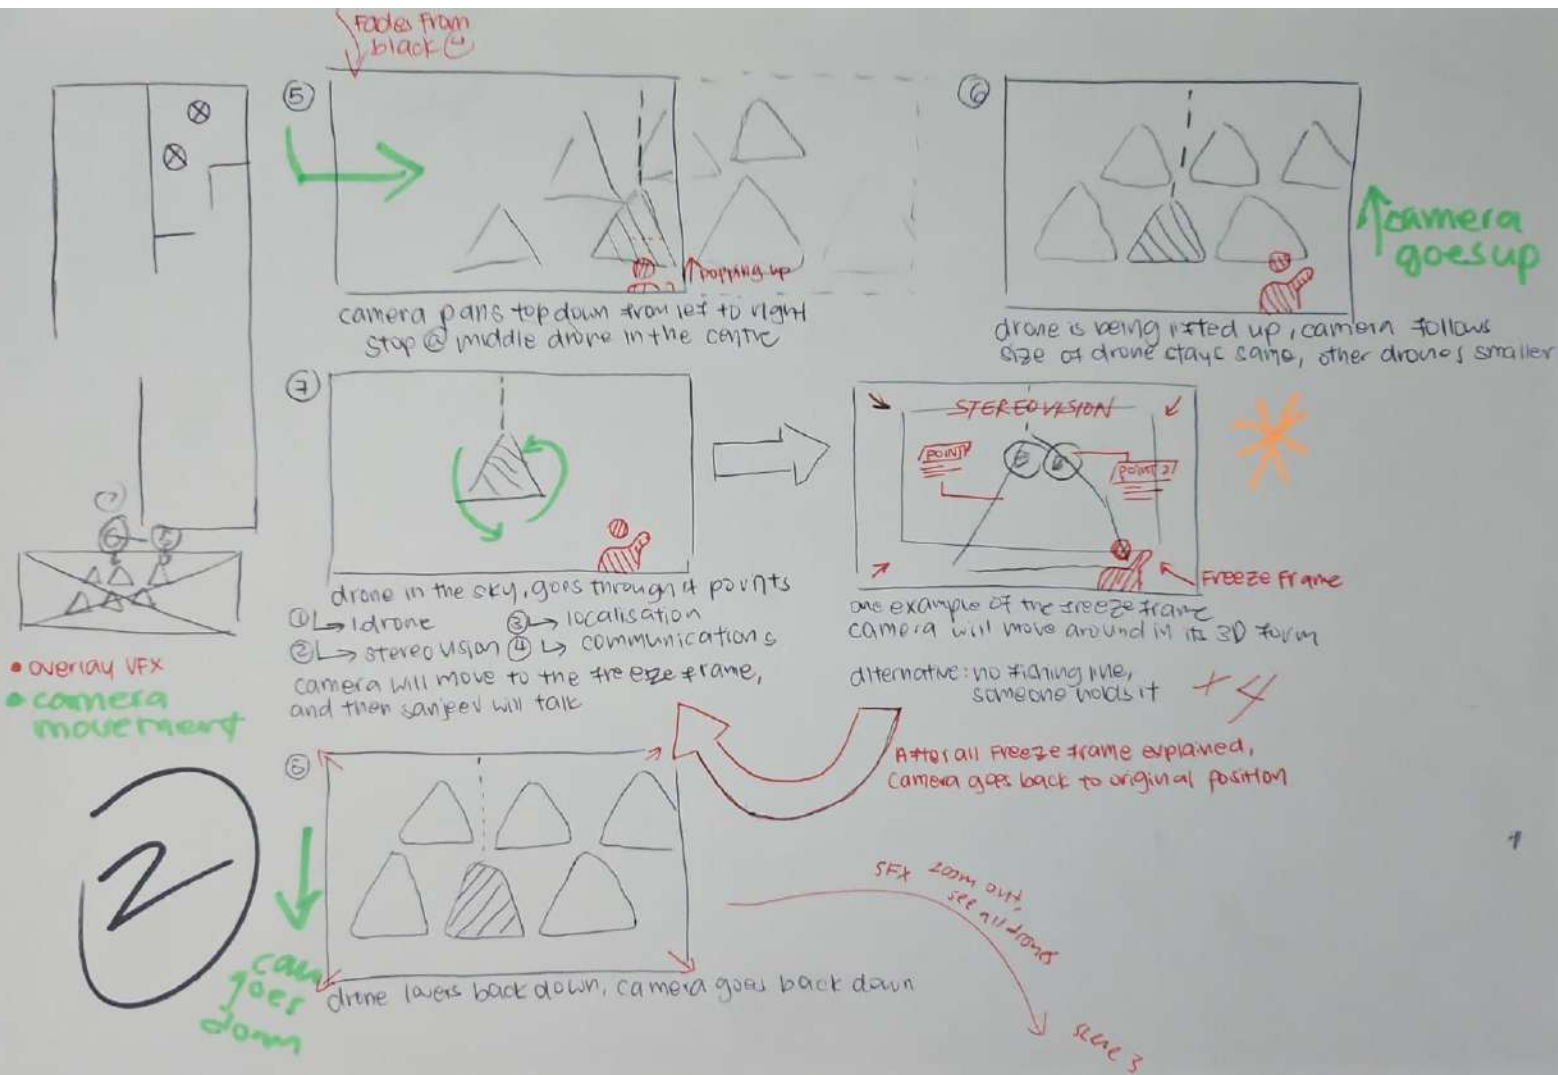 Fades from
black
5
popping up
camera pans top down from left to right
stop @ middle drone in the centre
6
camera
goes up
drone is being lifted up, camera follows
size of drone stays same, other drones smaller
7
drone in the sky, goes through 4 points
① ↳ 1 drone ③ ↳ localisation
② ↳ stereo vision ④ ↳ communications
camera will move to the freeze frame,
and then sanjeev will talk
STEREOVISION
POINT
POINT 2
FREEZE FRAME
one example of the freeze frame
camera will move around in its 3D form
alternative: no fishing line,
someone holds it
+4
After all freeze frame explained,
camera goes back to original position
6
5
• overlay VFX
• camera
movement
2
cam
goes
down
drone lowers back down, camera goes back down
SFX zoom out,
see all drones
scene 3